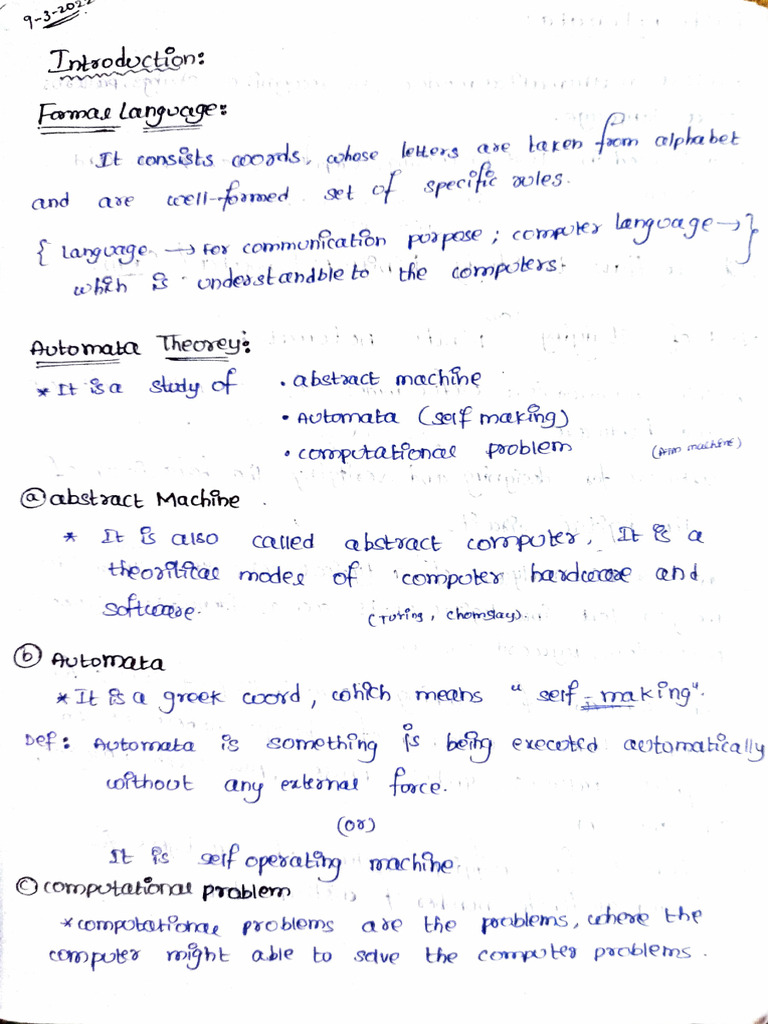 9-3-2022
Introduction:
Formal Language:
It consists words, whose letters are taken from alphabet
and are well-formed set of specific rules.
{ Language → For communication purpose; computer language → }
which is understandble to the computers.
Automata Theorey:
* It is a study of • abstract machine
• Automata (self making)
• computational problem (ATM machine)
(a) abstract Machine
* It is also called abstract computer. It is a
theoritical model of computer hardware and
software. (Turing, chomsky).
(b) Automata
* It is a greek word, which means " self-making".
Def: Automata is something is being executed automatically
without any external force.
(or)
It is self operating machine.
(c) computational problem
* computational problems are the problems, where the
computer might able to solve the computer problems.